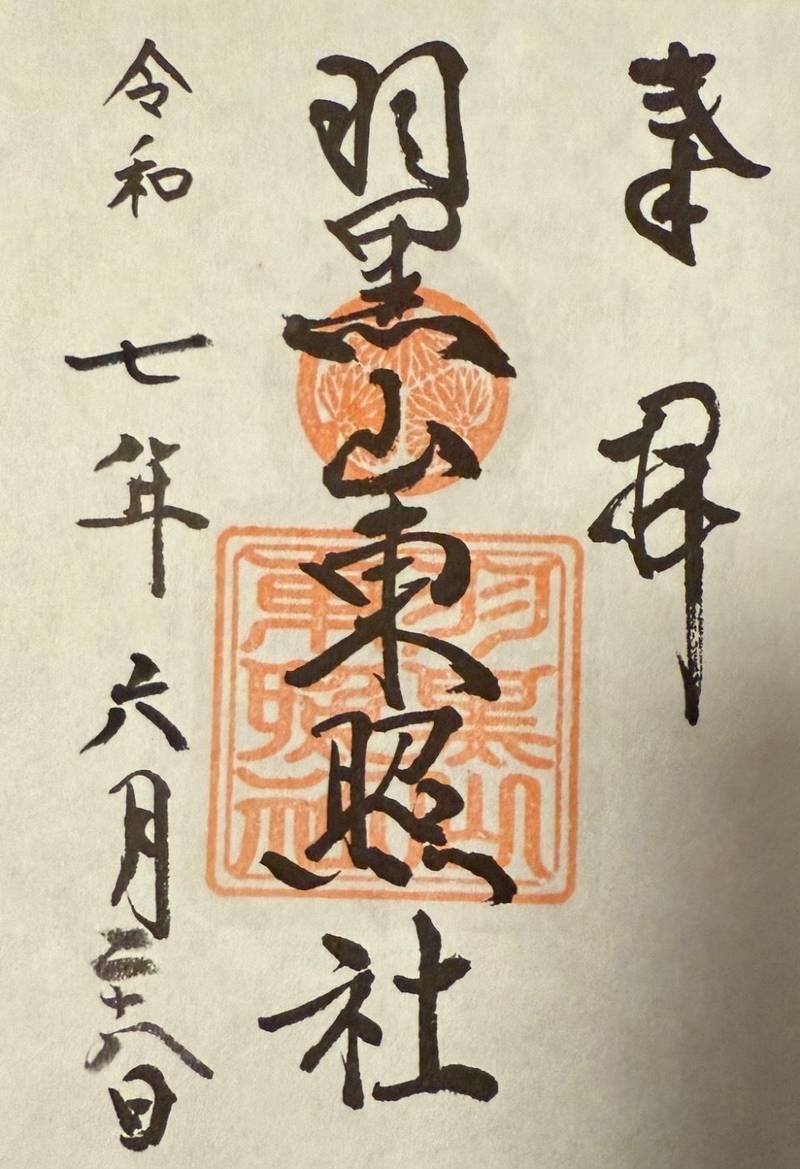 奉拝
羽黒山東照社
羽黒山東照社
令和七年六月二十八日